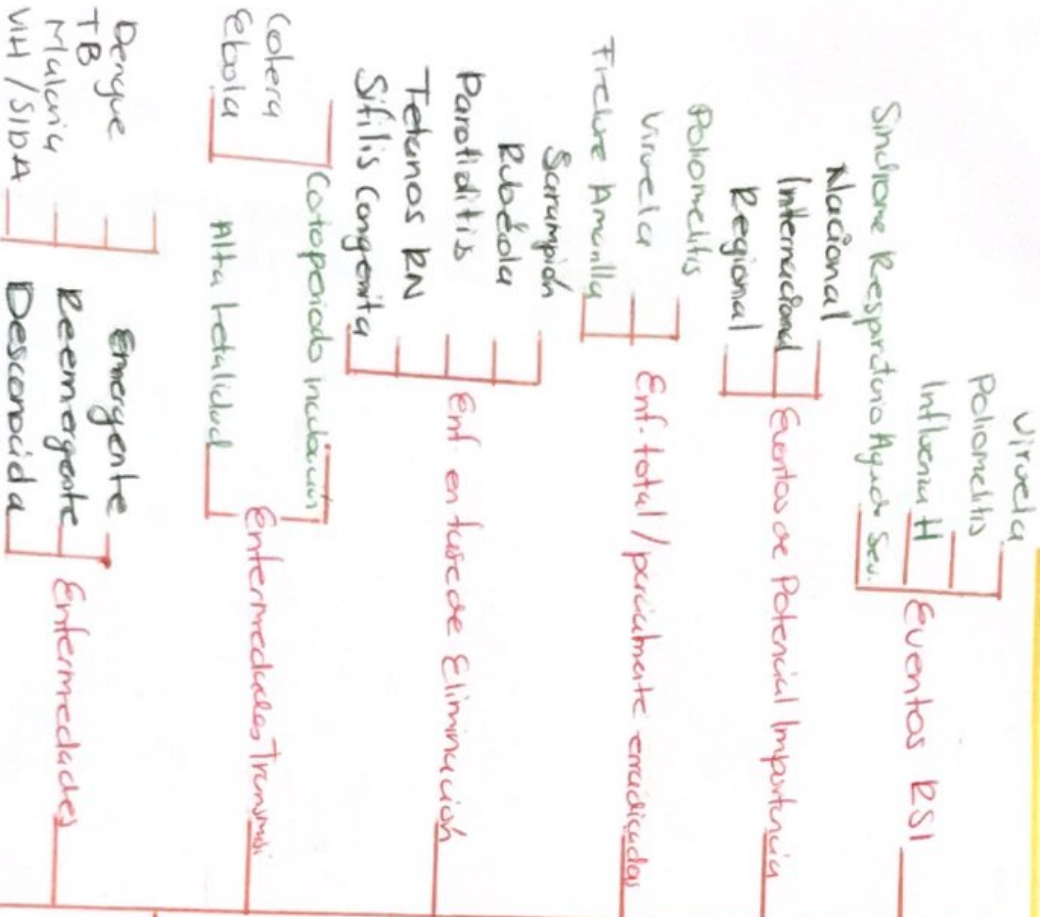 Viruela
Poliomelitis
Influenza H
Sindrome Respiratorio Agudo Sev.
Eventos RSI
Nacional
Internacional
Regional
Eventos de Potencial Importancia
Poliomelitis
Viruela
Fiebre Amarilla
Enf. total / parcialmente erradicadas
Sarampión
Rubéola
Parotiditis
Tetanos RN
Sifilis Congenita
Enf. en fase de Eliminación
Coto periodo incubación
Colera
Ebola
Alta Letalidad
Enfermedades Transmisi
Emergente
Reemergente
Desconocida
Dengue
TB
Malaria
VIH / SIDA
Enfermedades